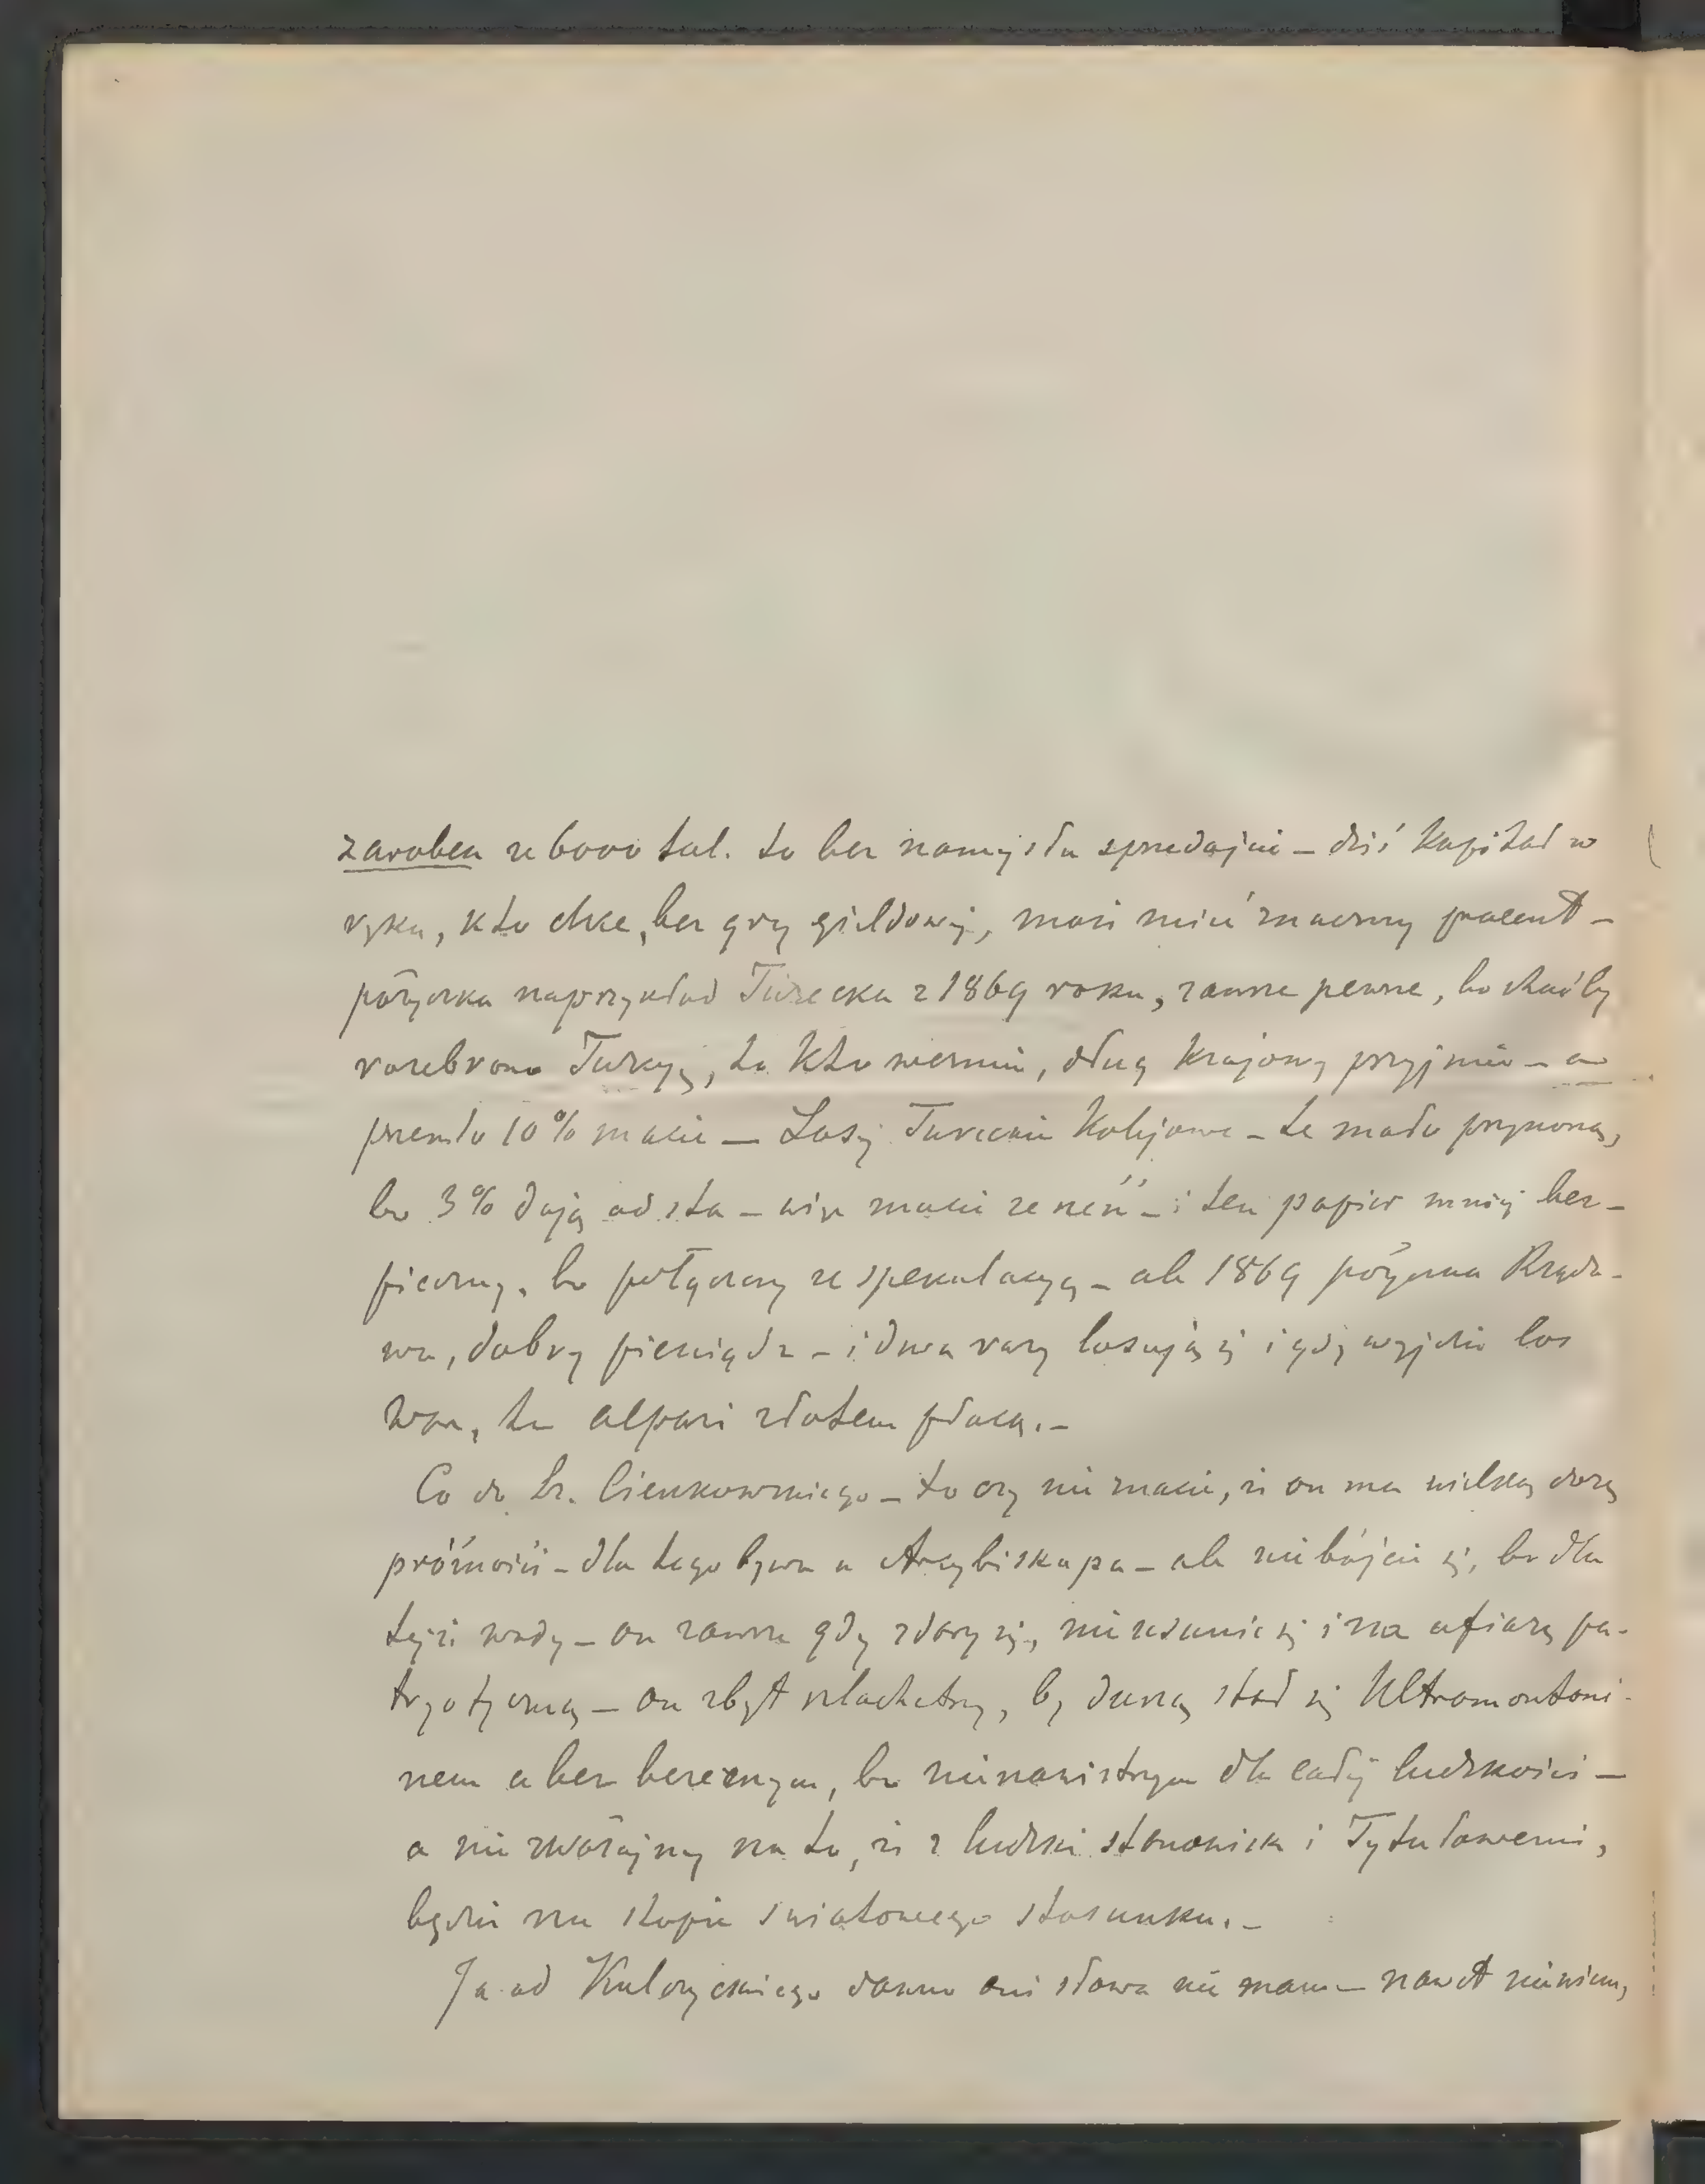 zaroben ze 6000 tal. to bez namysłu sprzedajcie – dziś kapitał w
ręku, kto chce, bez gry giełdowéj, może mieć znaczny procent –
pożyczka naprzykład Turecka z 1869 roku, zawsze pewne, bo choćby
rozebrano Turcyę, to kto weźmie, dług krajowy przyjmie – a
przeszło 10% macie — Losy Tureckie Kolejowe – te mało przynoszą,
bo 3% dają od sta – więc macie sześć – i ten papier mniéj bez-
pieczny, bo połączony ze spekulacyą – ale 1869 pożyczka Rządo-
wa, dobry pieniądz – i dwa razy losują się i gdy wyjdzie los
Wasz, to alpari złotem płacą. –
Co do hr. Cieszkowskiego – to czy nie znacie, że on ma wielką dozę
próżności – dla tego bywa u Arcybiskupa – ale nie bójcie się, bo dla
tejże wady – on zawsze gdy zdarzy się, nie usunie się i na ofiarę pa-
tryotyczną – on zbyt szlachetny, by duszą stał się Ultramontani-
nem a bez bezecnym, bo nienawistnym dla całéj ludzkości –
a nie zważajmy na to, że z ludźmi stanowiska i Tytułowemi,
będzie na stopie światowego stosunku. –
Ja od Kulczyckiego dawno ani słowa nie mam – nawet nie wiem,